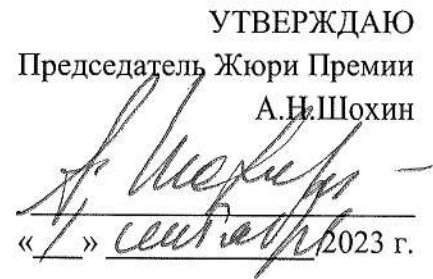 УТВЕРЖДАЮ
Председатель Жюри Премии
А.Н.Шохин
А. Шохин
« » сентября 2023 г.